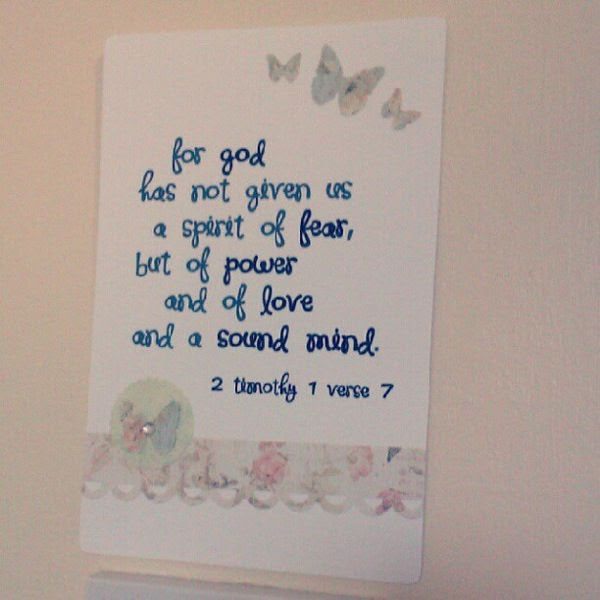 for god
has not given us
a spirit of fear,
but of power
and of love
and a sound mind.
2 timothy 1 verse 7